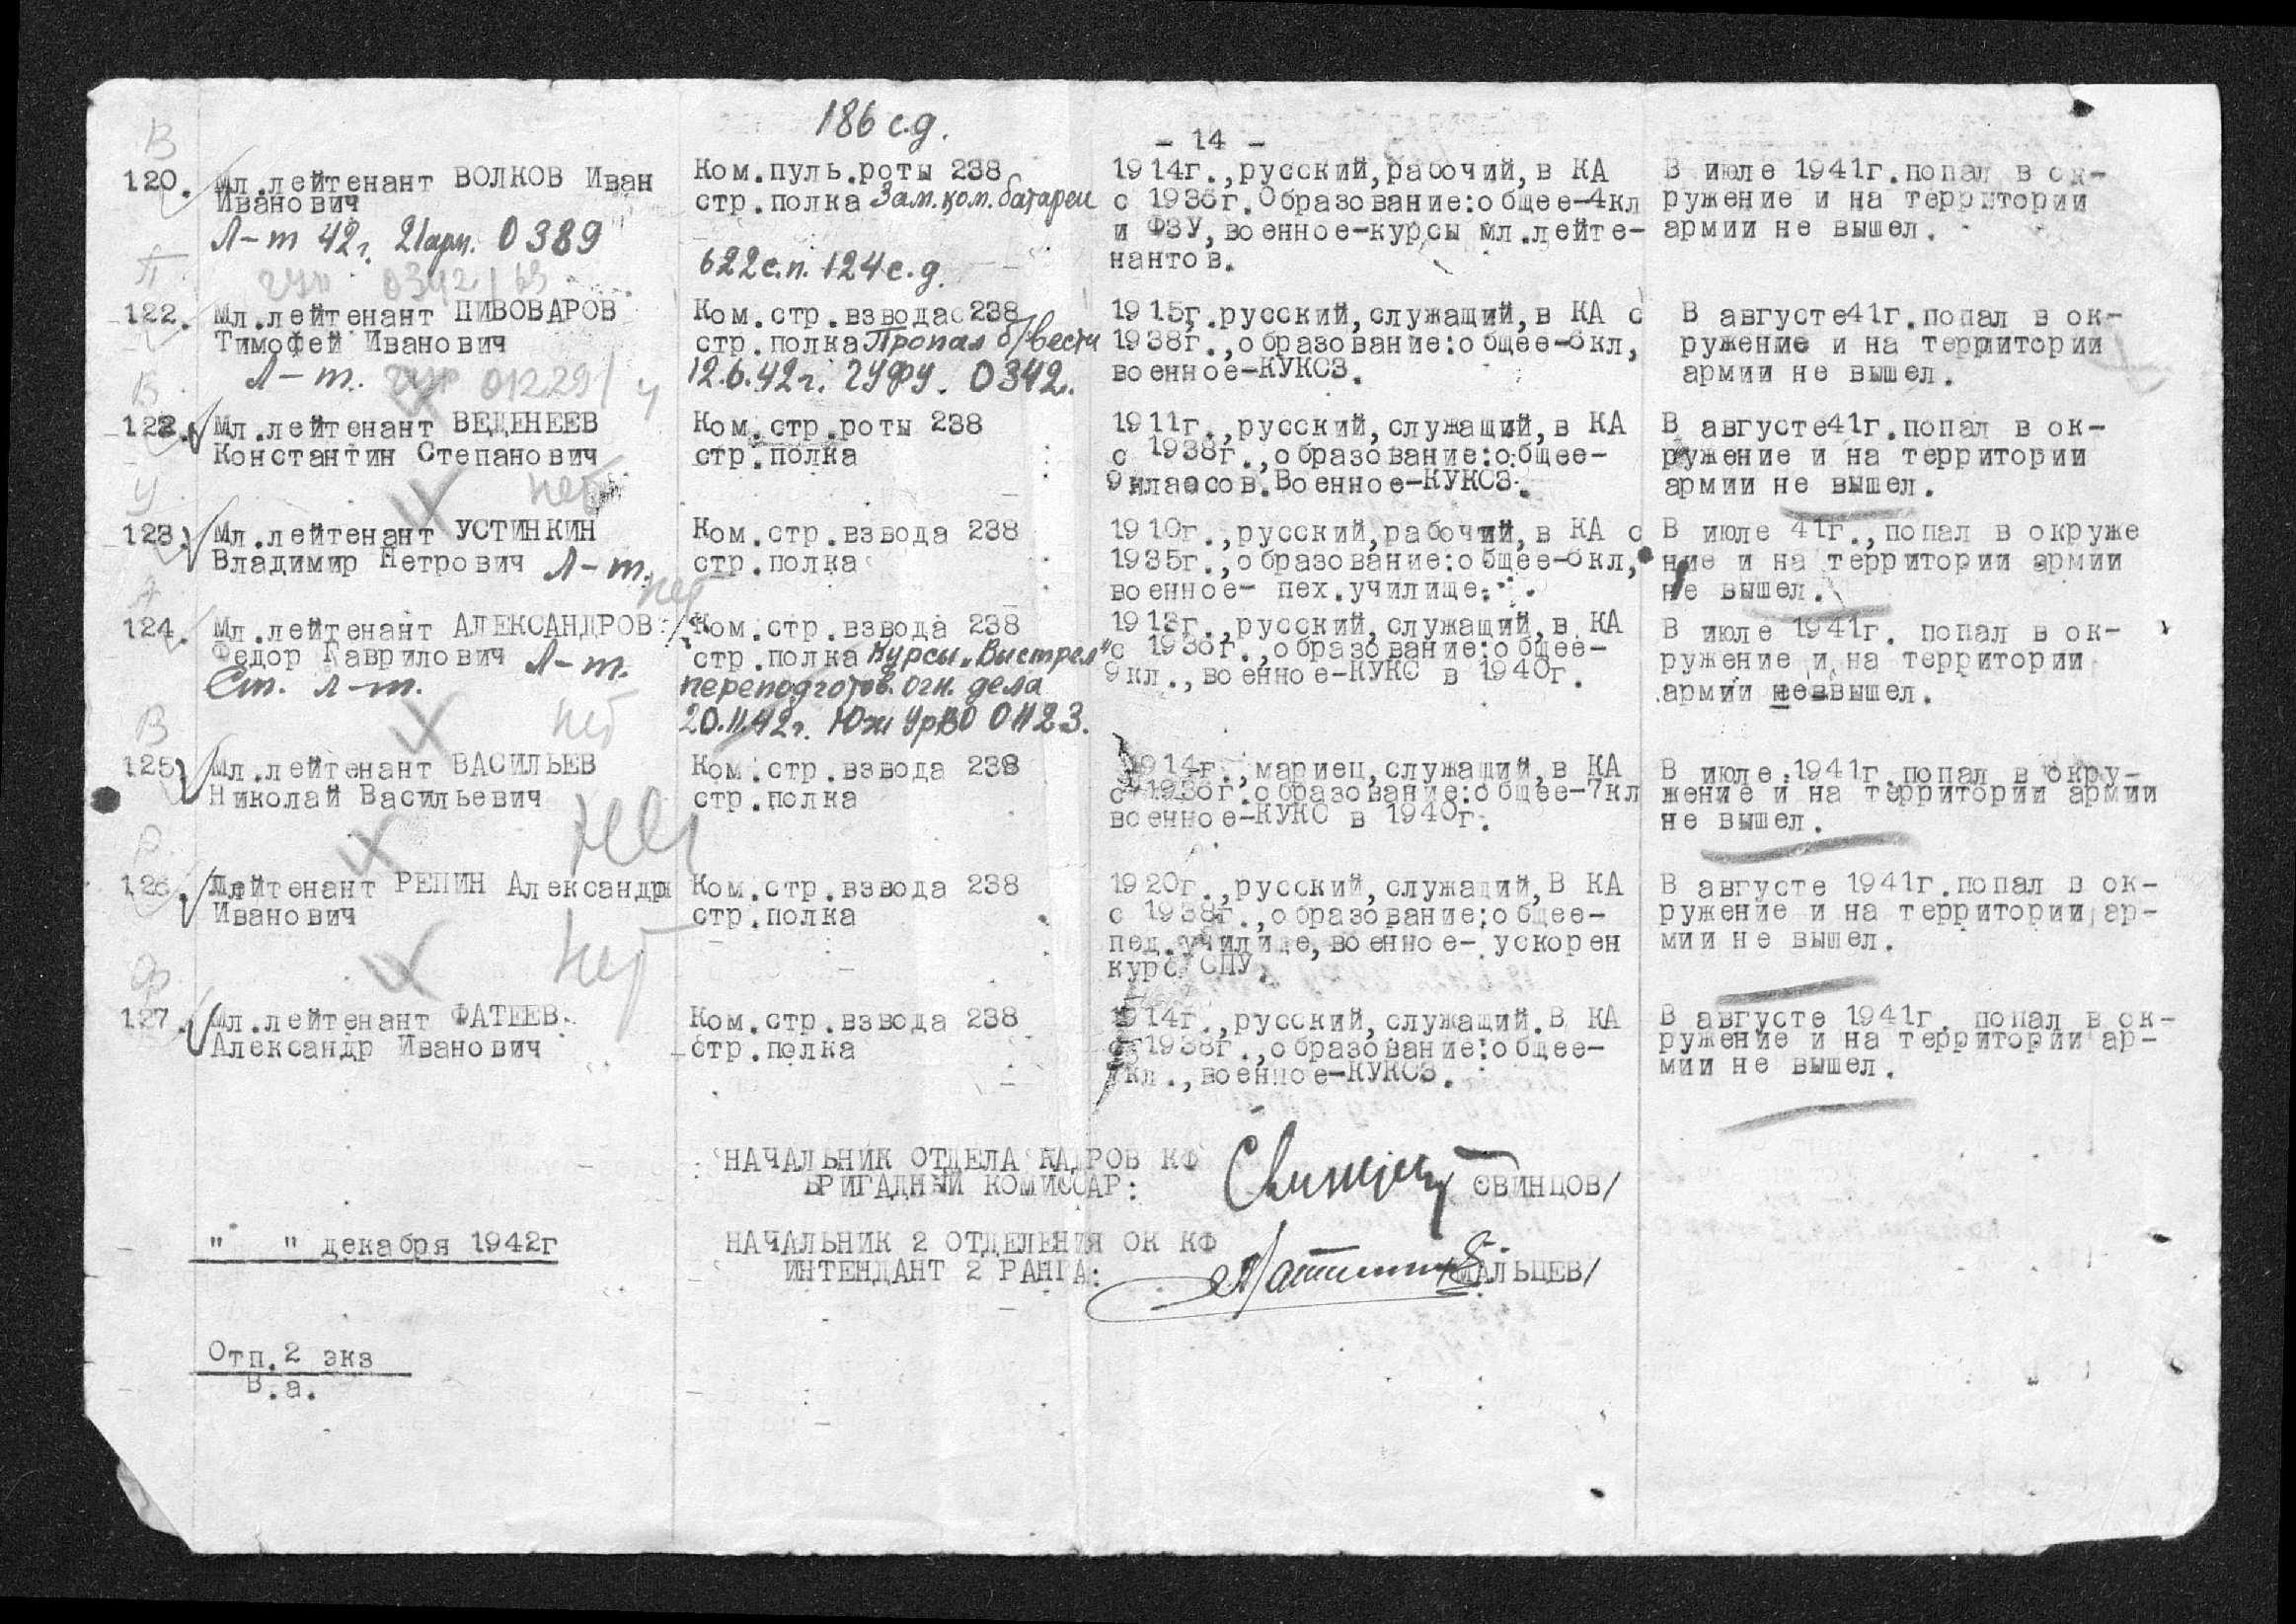 186 с.д.
- 14 -
В
120. Мл.лейтенант ВОЛКОВ Иван
Иванович
Л-т 42г. 21арм. 0389
Ком.пуль.роты 238
стр.полка Зам.ком.батареи
1914г.,русский,рабочий,в КА
с 1936г.Образование:общее-4кл
и ФЗУ,военное-курсы мл.лейте-
нантов.
В июле 1941г.попал в ок-
ружение и на территории
армии не вышел.
П
0342/69
122. Мл.лейтенант ПИВОВАРОВ
Тимофей Иванович
Л-т. 01229/
622с.п. 124с.д.
Ком.стр.взвода 238
стр.полка Пропал б/вести
12.6.42г. ГУФУ. 0342.
1915г.русский,служащий,в КА с
1938г.,образование:общее-6кл,
военное-КУКСЗ.
В августе41г.попал в ок-
ружение и на территории
армии не вышел.
В
122. Мл.лейтенант ВЕДЕНЕЕВ
Константин Степанович
нет
Ком.стр.роты 238
стр.полка
1911г.,русский,служащий,в КА
с 1938г.,образование:общее-
9классов.Военное-КУКСЗ.
В августе41г.попал в ок-
ружение и на территории
армии не вышел.
У
123. Мл.лейтенант УСТИНКИН
Владимир Петрович Л-т.
нет
Ком.стр.взвода 238
стр.полка
1910г.,русский,рабочий,в КА с
1935г.,образование:общее-6кл,
военное- пех.училище.
В июле 41г.,попал в окруже
ние и на территории армии
не вышел.
А
124. Мл.лейтенант АЛЕКСАНДРОВ
Федор Гаврилович Л-т.
Ст. л-т.
нет
Ком.стр.взвода 238
стр.полка Курсы „Выстрел"
переподготов. огн. дела
20.11.42г. Юж УрВО 01123.
1913г.,русский,служащий,в КА
с 1936г.,образование:общее-
9кл.,военное-КУКС в 1940г.
В июле 1941г. попал в ок-
ружение и на территории
армии неввышел.
В
125. Мл.лейтенант ВАСИЛЬЕВ
Николай Васильевич
нет
Ком.стр.взвода 238
стр.полка
1914г.,мариец,служащий,в КА
с 1936г.образование:общее-7кл
военное-КУКС в 1940г.
В июле 1941г.попал в окру-
жение и на территории армии
не вышел.
Р
126. Лейтенант РЕПИН Александр
Иванович
нет
Ком.стр.взвода 238
стр.полка
1920г.,русский,служащий,В КА
с 1938г.,образование:общее-
пед.училище,военное- ускорен
курс СПУ.
В августе 1941г.попал в ок-
ружение и на территории ар-
мии не вышел.
Ф
127. Мл.лейтенант ФАТЕЕВ
Александр Иванович
Ком.стр.взвода 238
стр.полка
1914г.,русский,служащий.В КА
с 1938г.,образование:общее-
7кл.,военное-КУКСЗ.
В августе 1941г. попал в ок-
ружение и на территории ар-
мии не вышел.
НАЧАЛЬНИК ОТДЕЛА КАДРОВ КФ
БРИГАДНЫЙ КОМИССАР: СВИНЦОВ/
" " декабря 1942г
НАЧАЛЬНИК 2 ОТДЕЛЕНИЯ ОК КФ
ИНТЕНДАНТ 2 РАНГА: /МАЛЬЦЕВ/
Отп.2 экз
В.а.